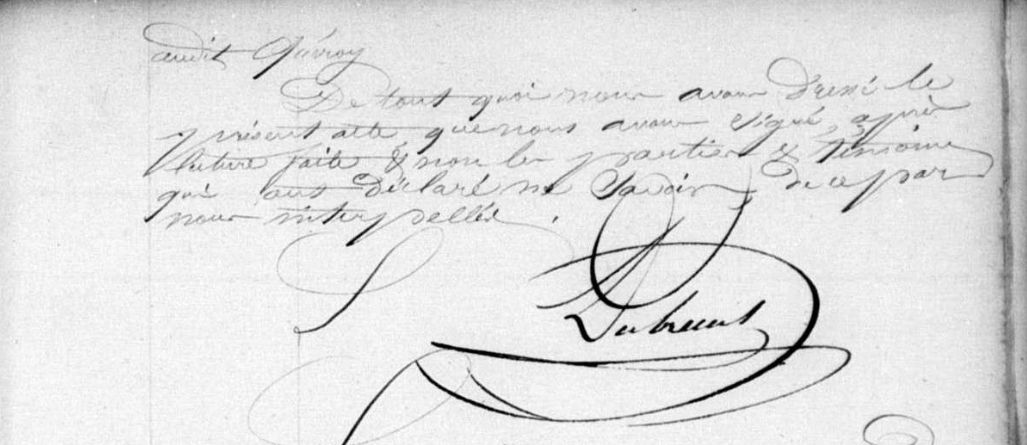 audit Gévroy
De tout quoi nous avons dressé le
présent acte que nous avons signé, après
lecture faite & non les parties & témoins
qui ont déclaré ne savoir, de ce par
nous interpellés.
Dubreuet